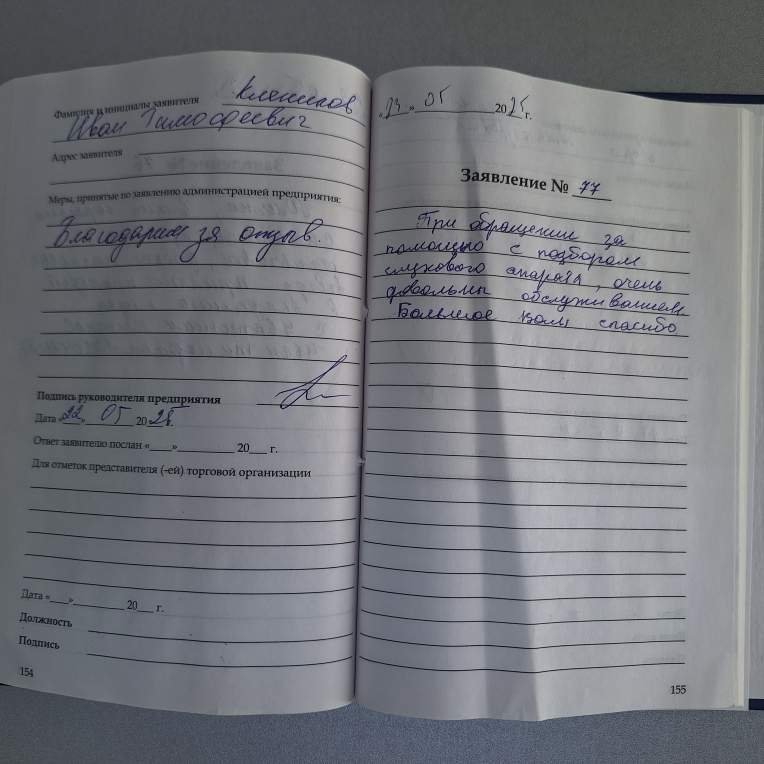 Фамилия и инициалы заявителя
Иван Тимофеевич
Адрес заявителя
Меры, принятые по заявлению администрацией предприятия:
Благодарим за отзыв.
Подпись руководителя предприятия
Дата «22» 05 2025г.
Ответ заявителю послан «___»_________ 20___ г.
Для отметок представителя (-ей) торговой организации
Дата «___»_________ 20___ г.
Должность
Подпись
154
«23» 05 2025г.
Заявление № 77
При обращении за
помощью с подбором
слухового апарата, очень
довольны обслуживанием
Большое вам спасибо
155